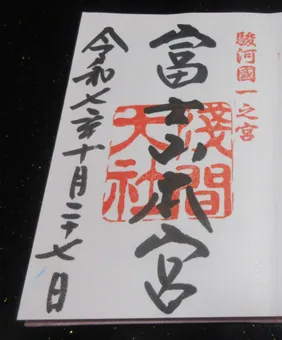 駿河國一之宮
富士山本宮
淺間
大社
令和七年十月二十七日